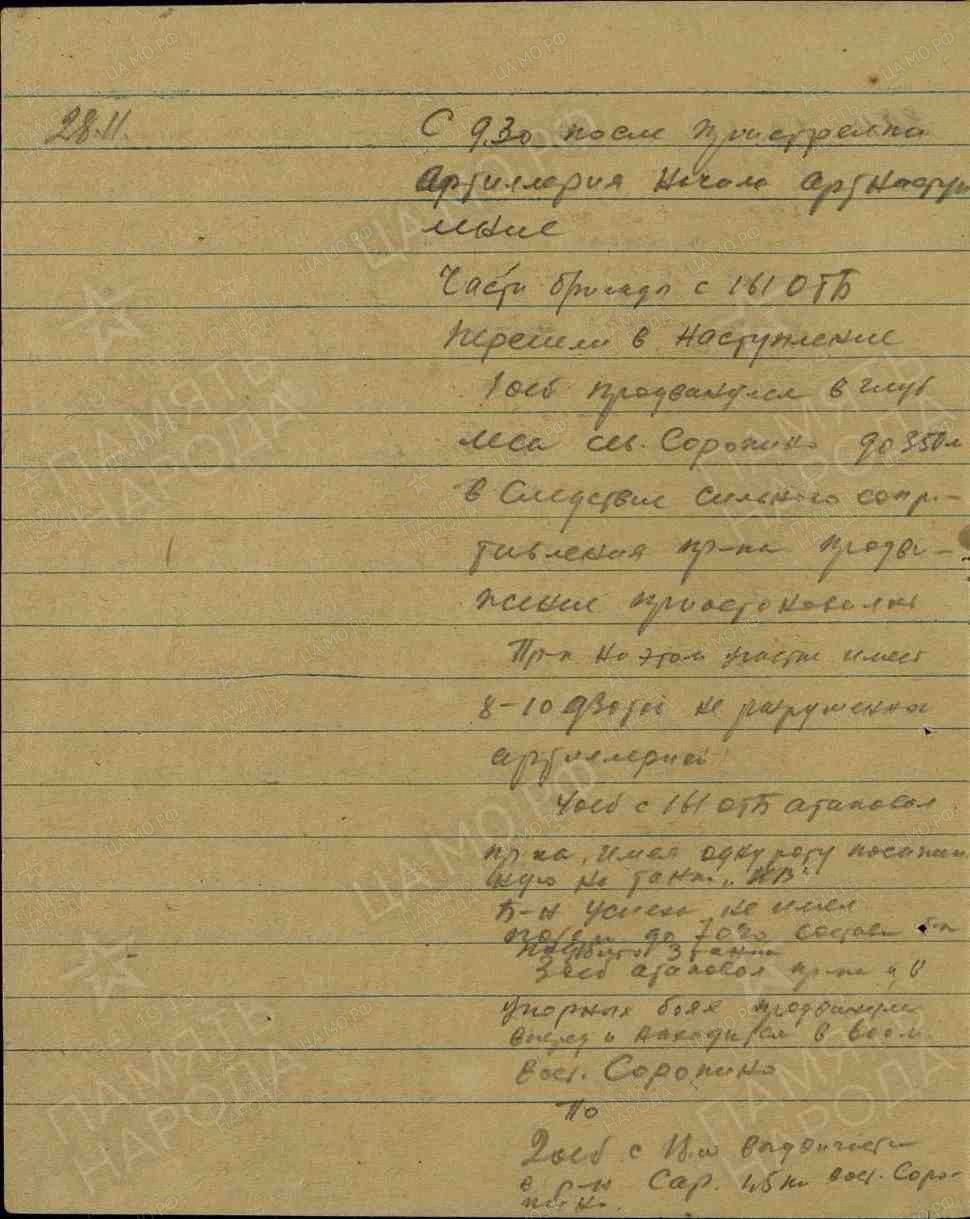 28.11.
С 9.30 после пристрелки
Артиллерия начала артнаступ
ление
Части бригады с 161 ОТБ
перешли в наступление
1 осб продвинулся в глуб
леса сев. Сорокино до 350 м
в следствие сильного сопр-
тивления пр-ка продви-
жение приостоновлено
Пр-к на этом участке имеет
8-10 дзотов не разрушенных
артиллерией
4осб с 161 отБ атаковал
пр-ка, имея одну роту посажен
ную на танки "КВ"
Б-н успеха не имел
потери до 70% состава б-на
Подбито 3 танка
3 осб атаковал пр-ка и в
упорных боях продвинулся
вперед и находится в
вост. Сорокино
По
2осб с 18.00 выдвигается
в р-н Сар. 1,5 км вост. Соро-
кино.